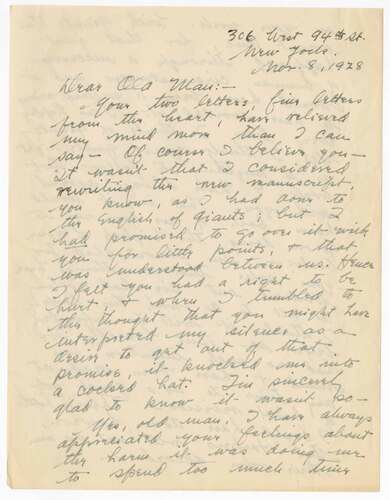 306 West 94th St.
New York.
Nov. 8, 1928
Dear Old Man:—
Your two letters, fine letters
from the heart, have relieved
my mind more than I can
say — Of course I believe you —
It wasn't that I considered
rewriting the new manuscript,
you know, as I had done to
the English of Giants; but I
had promised to go over it with
you for little points, & that
was understood between us. Hence
I felt you had a right to be
hurt, & when I tumbled to
the thought that you might have
interpreted my silence as a
desire to get out of that
promise, it knocked me into
a cocked hat. I'm sincerely
glad to know it wasn't so —
Yes, old man, I have always
appreciated your feelings about
the harm it was doing me
to spend too much time